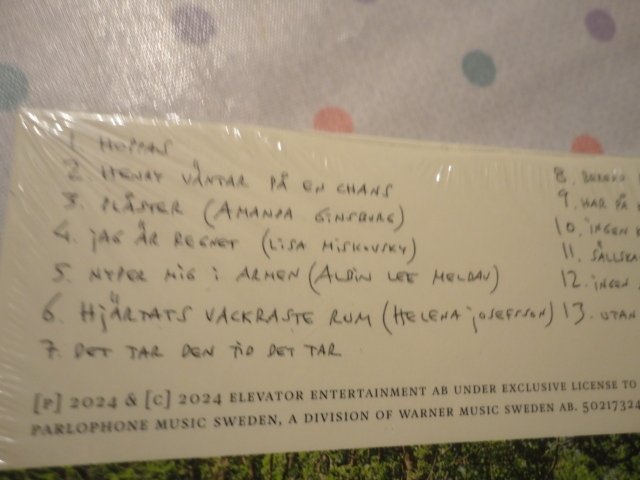 1 HOPPAS
2. HENRY VÄNTAR PÅ EN CHANS
3. PLÅSTER (AMANDA GINSBURG)
4. JAG ÄR REGNET (LISA MISKOVSKY)
5. NYPER MIG I ARMEN (ALBIN LEE MELDAU)
6. HJÄRTATS VACKRASTE RUM (HELENA JOSEFSSON)
7. DET TAR DEN TID DET TAR
8.
9. HAR PÅ
10. INGEN
11. SÄLLSKA
12. INGEN
13. UTAN
[P] 2024 & [C] 2024 ELEVATOR ENTERTAINMENT AB UNDER EXCLUSIVE LICENSE TO
PARLOPHONE MUSIC SWEDEN, A DIVISION OF WARNER MUSIC SWEDEN AB. 50217324